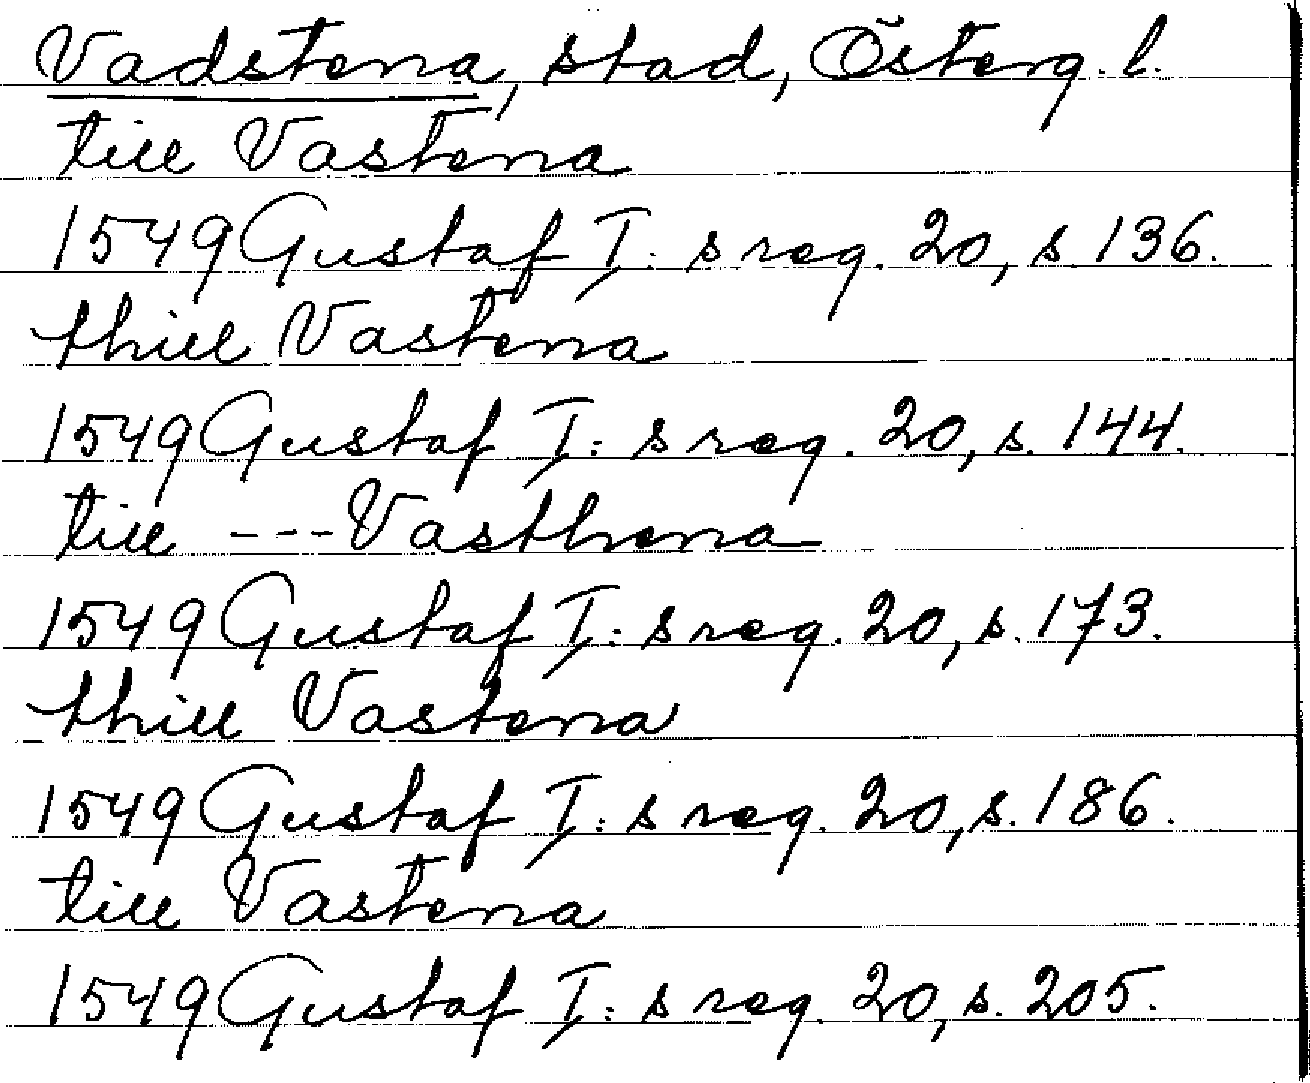 Vadstena, stad, Österg. l.
till Vastena
1549 Gustaf I: s reg. 20, s 136.
thill Vastena
1549 Gustaf I: s reg. 20, s. 144.
till --- Vasthena
1549 Gustaf I: s reg. 20, s. 173.
thill Vastena
1549 Gustaf I: s reg. 20, s. 186.
till Vastena
1549 Gustaf I: s reg. 20, s. 205.